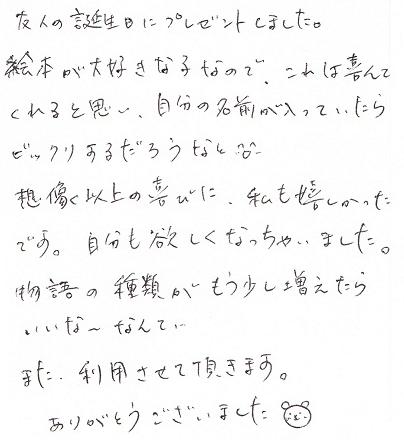 友人の誕生日にプレゼントしました。
絵本が大好きな子なので、これは喜んで
くれると思い、自分の名前が入っていたら
ビックリするだろうなと
想像以上の喜びに、私も嬉しかった
です。自分も欲しくなっちゃいました。
物語の種類がもう少し増えたら
いいな〜なんて…
また、利用させて頂きます。
ありがとうございました